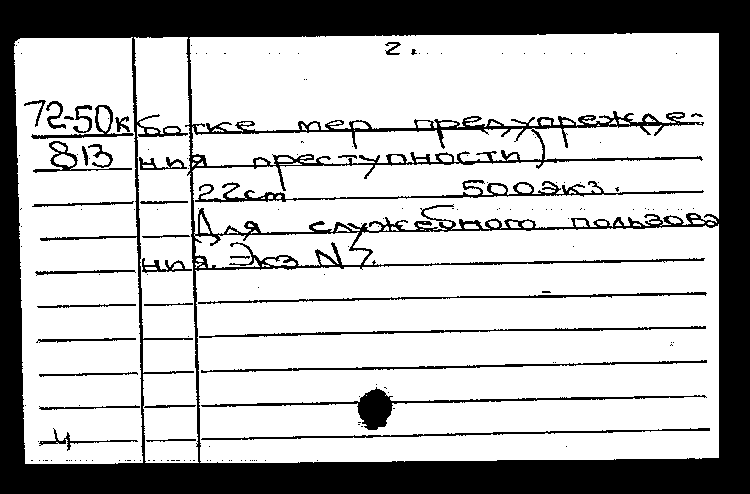 2.
72-50к ботке мер предупрежде-
813 ния преступности).
22 cm 500 экз.
Для служебного пользова
ния. Экз N
4